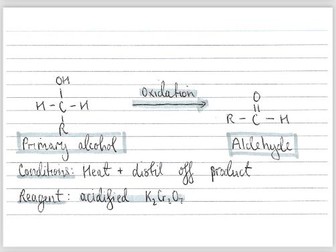 OH
Oxidation
O
H - C - H
R - C - H
R
Primary alcohol
Aldehyde
Conditions: Heat + distil off product
Reagent: acidified K₂Cr₂O₇